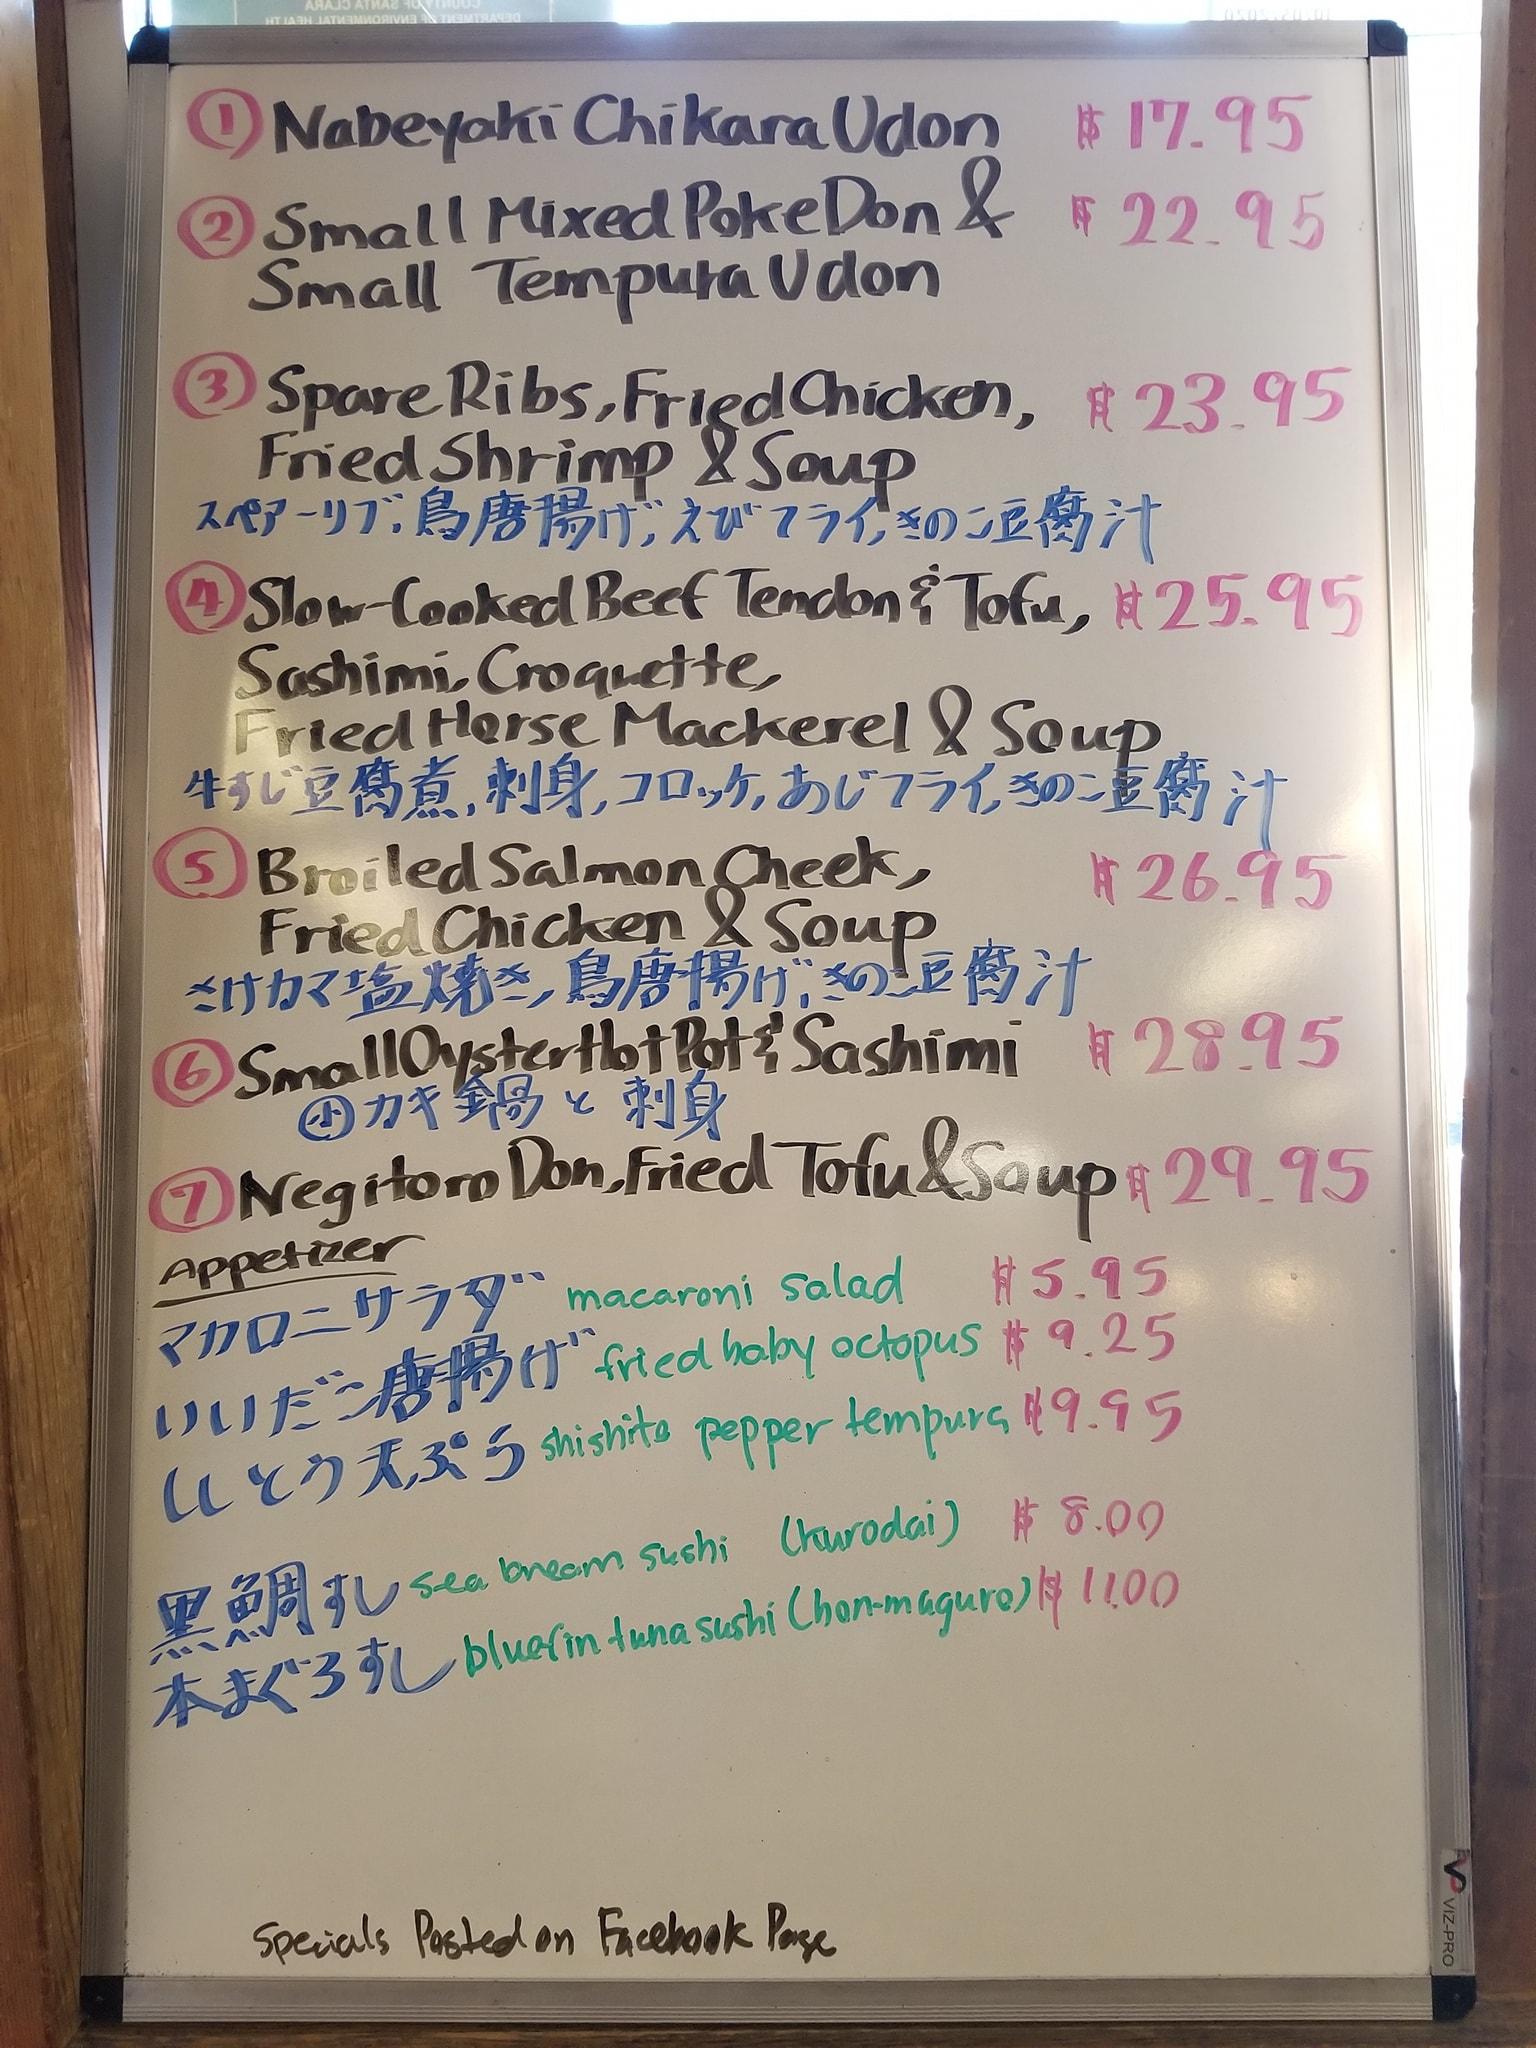 COUNTY OF SANTA CLARA
DEPARTMENT OF ENVIRONMENTAL HEALTH
① Nabeyaki Chikara Udon $17.95
② Small Mixed Poke Don & $22.95
Small Tempura Udon
③ Spare Ribs, Fried Chicken, $23.95
Fried Shrimp & Soup
スペアーリブ、鳥唐揚げ、えびフライ、きのこ豆腐汁
④ Slow-Cooked Beef Tendon & Tofu, $25.95
Sashimi, Croquette,
Fried Horse Mackerel & Soup
牛すじ豆腐煮、刺身、コロッケ、あじフライ、きのこ豆腐汁
⑤ Broiled Salmon Cheek, $26.95
Fried Chicken & Soup
さけカマ塩焼き、鳥唐揚げ、きのこ豆腐汁
⑥ Small Oyster Hot Pot & Sashimi $28.95
小カキ鍋と刺身
⑦ Negitoro Don, Fried Tofu & Soup $29.95
Appetizer
マカロニサラダ macaroni salad $5.95
いいだこ唐揚げ fried baby octopus $9.25
ししとう天ぷら shishito pepper tempura $9.95
黒鯛すし sea bream sushi (kurodai) $8.00
本まぐろすし bluefin tuna sushi (hon-maguro) $11.00
Specials Posted on Facebook Page
VIZ-PRO